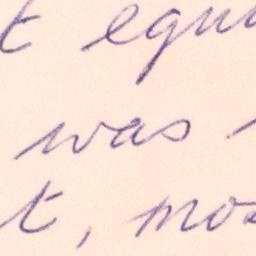 t equi
was
t, mos